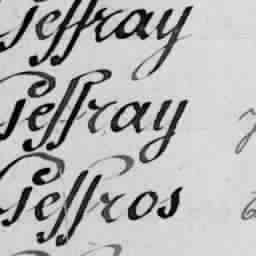 Geffray
Geffray
Geffros